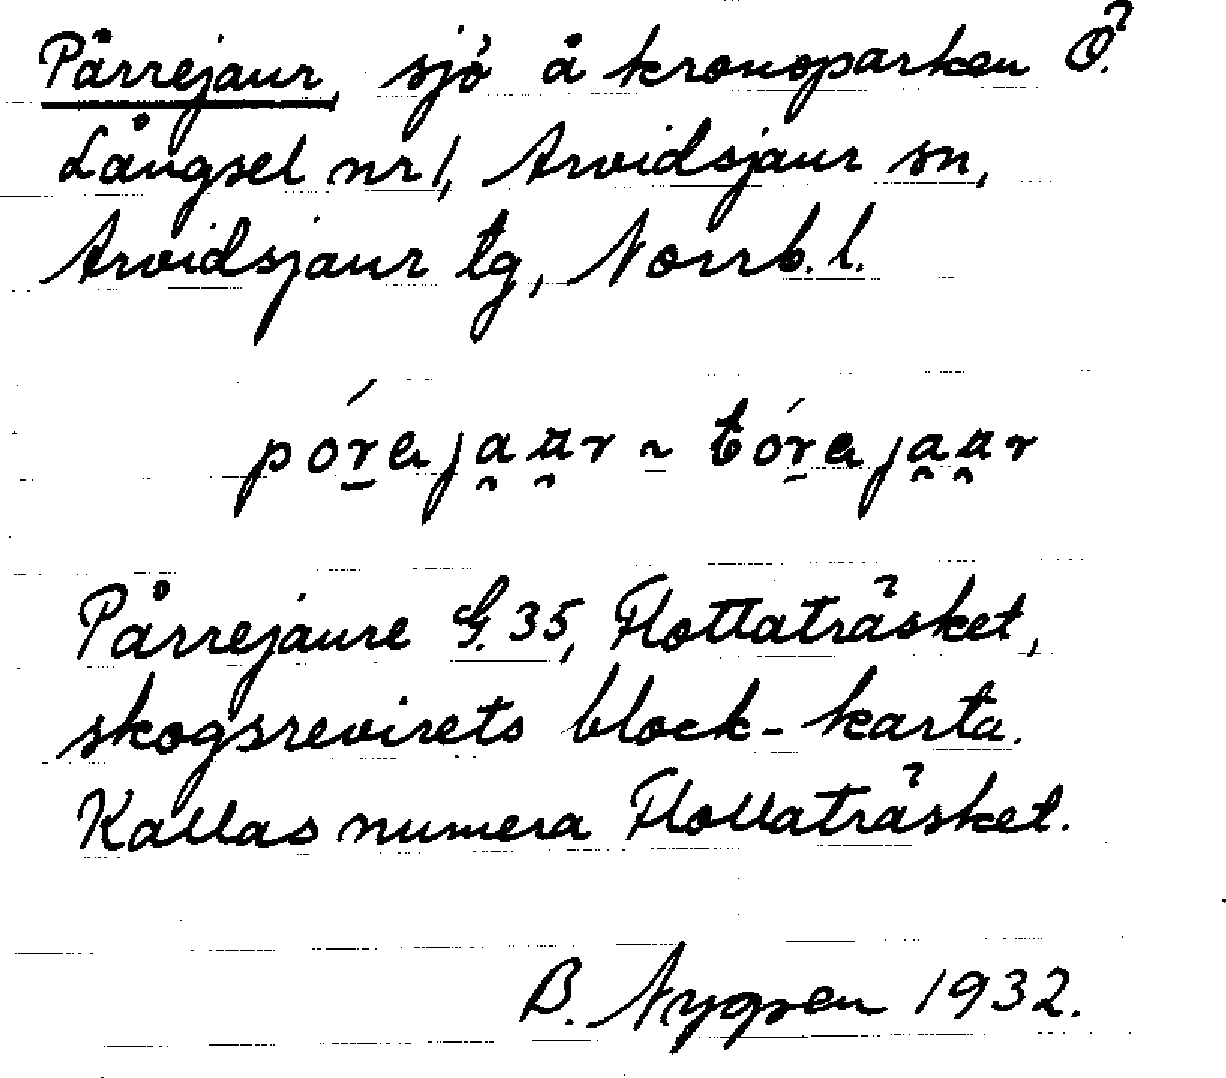 Pårrejaur, sjö å kronoparken Ö.
Långsel nr 1, Arvidsjaur sn,
Arvidsjaur tg, Norrb. l.
pórejaur ~ tórejaur
Pårrejaure G. 35, Flottaträsket,
skogsrevirets block-karta.
Kallas numera Flottaträsket.
B. Nygren 1932.